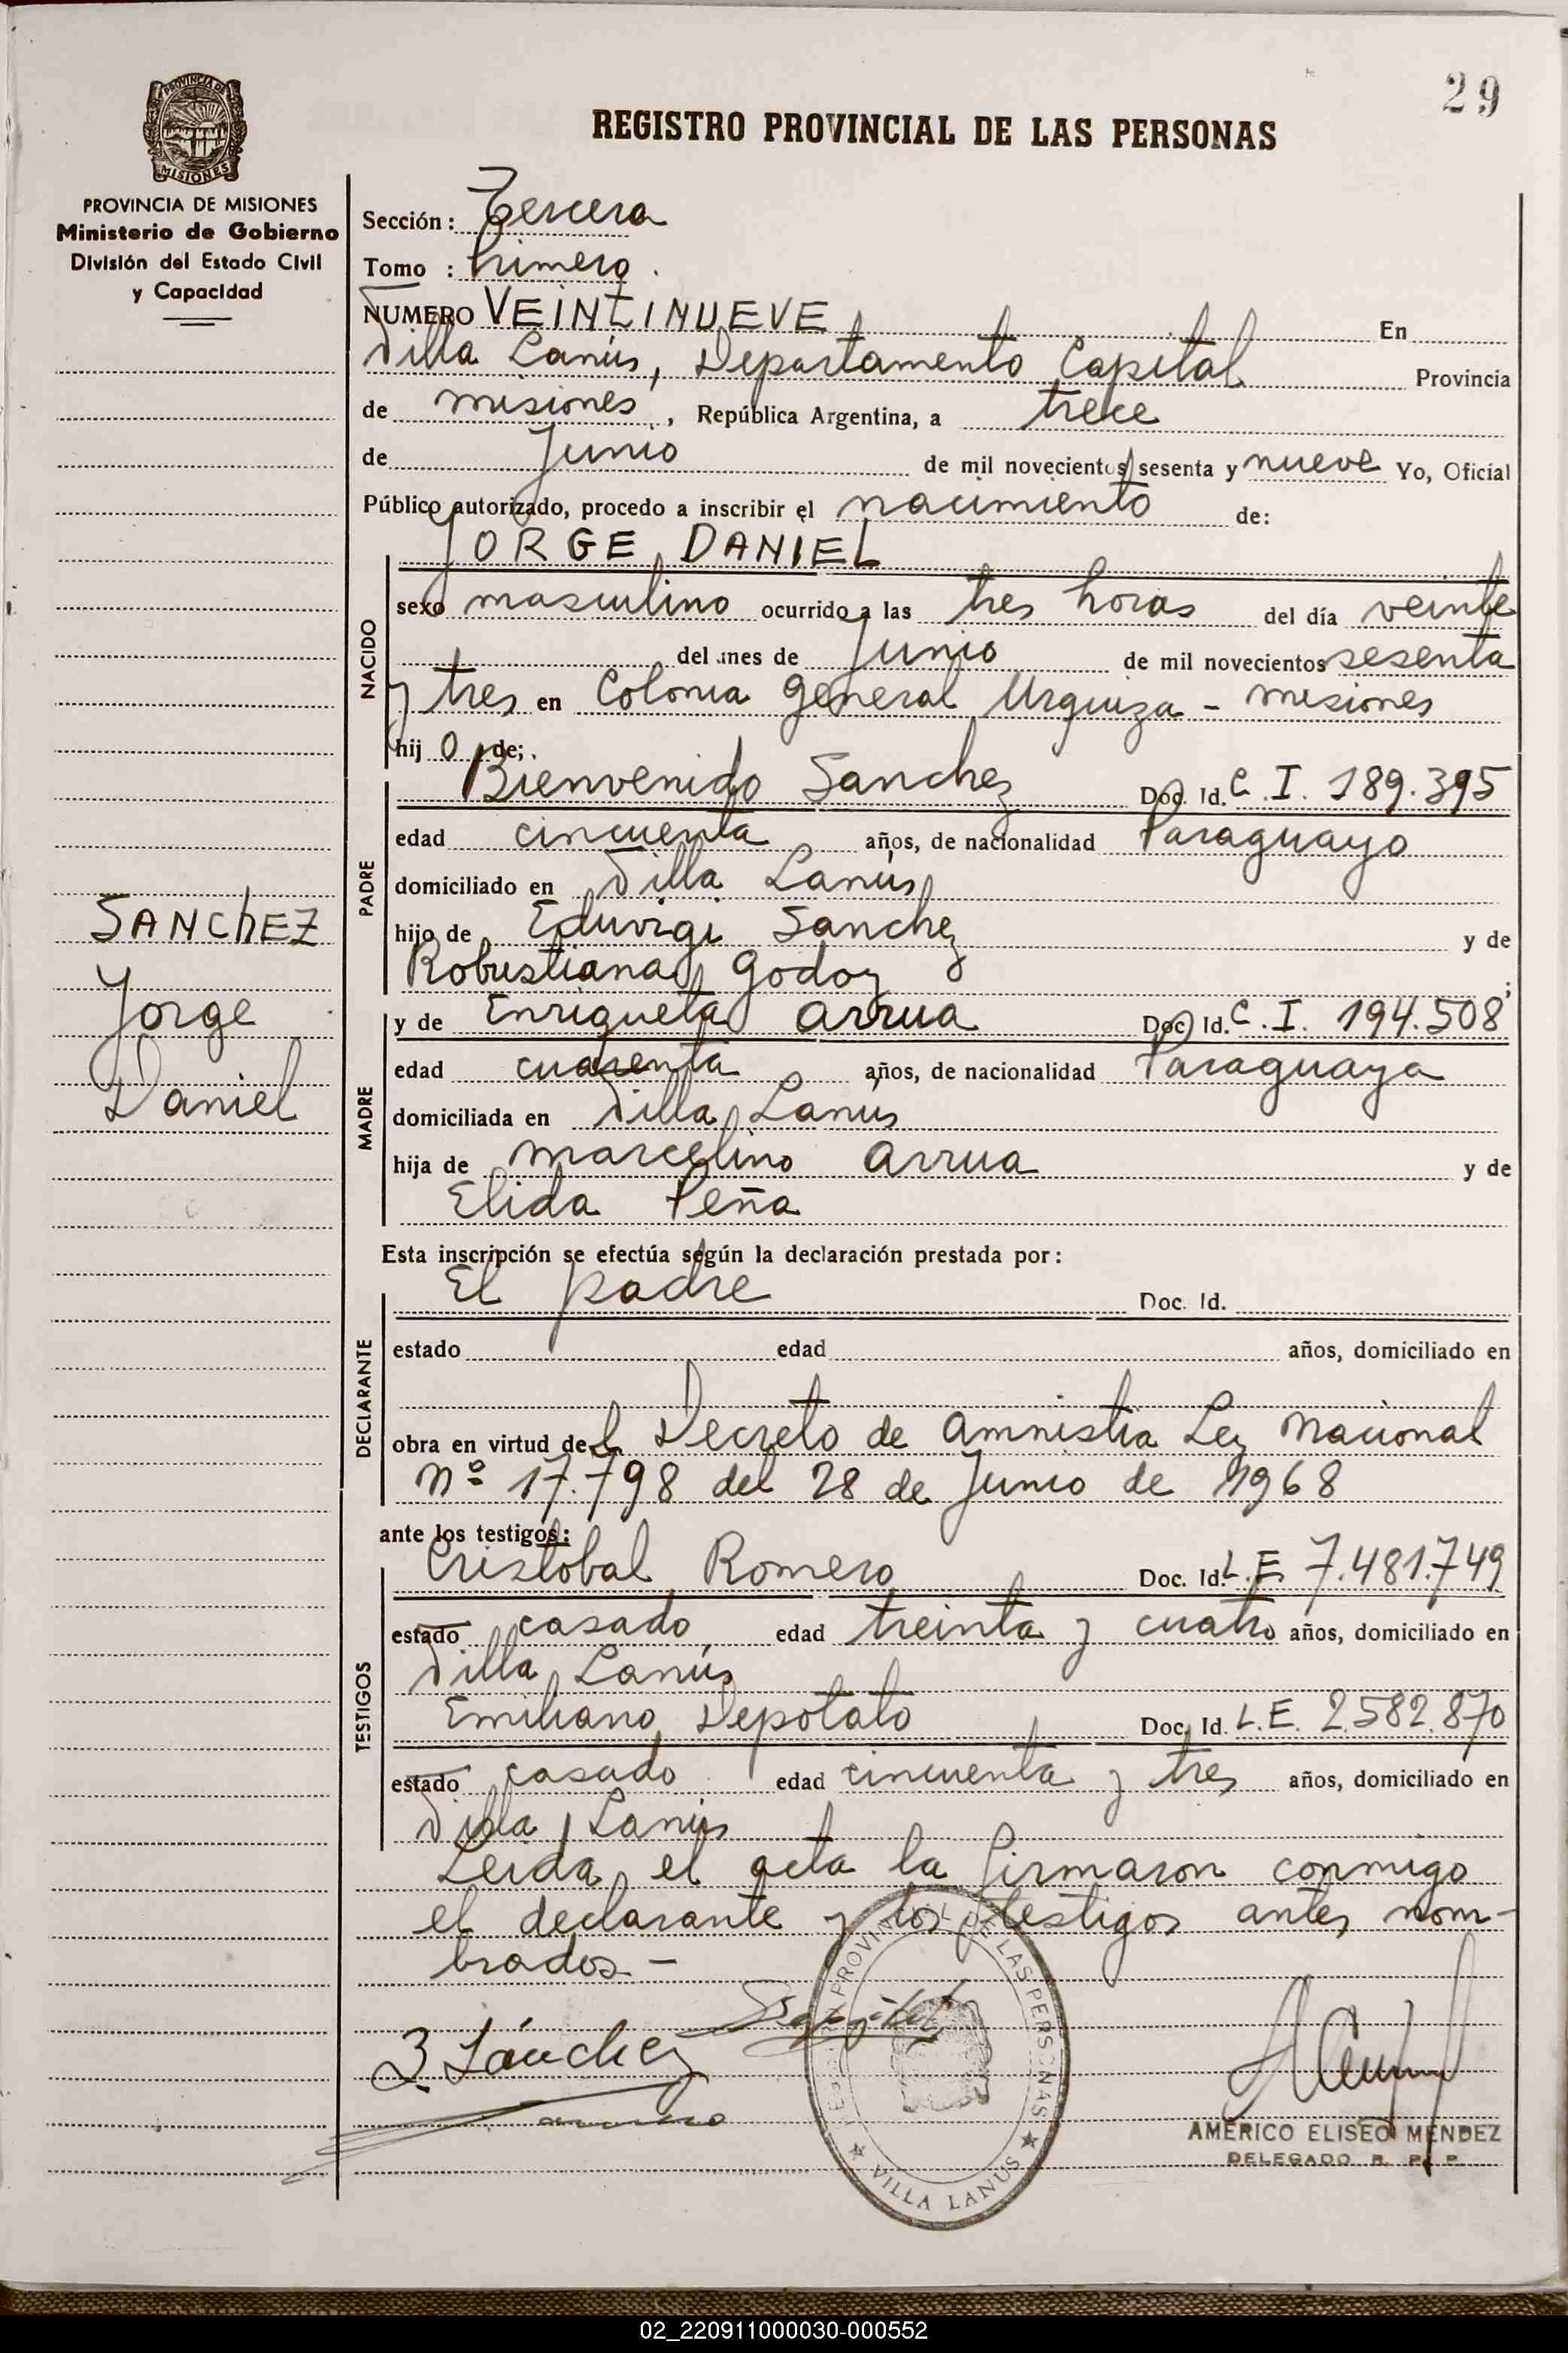 29
REGISTRO PROVINCIAL DE LAS PERSONAS
PROVINCIA DE MISIONES
MISIONES
PROVINCIA DE MISIONES
Ministerio de Gobierno
División del Estado Civil
y Capacidad
Sección: Tercera
Tomo : Primero.
NUMERO VEINTINUEVE En
Villa Lanús, Departamento Capital Provincia
de misiones, República Argentina, a trece
de Junio de mil novecientos sesenta y nueve Yo, Oficial
Público autorizado, procedo a inscribir el nacimiento de:
JORGE DANIEL
NACIDO
sexo masculino ocurrido a las tres horas del día veinte
del mes de Junio de mil novecientos sesenta
y tres en Colonia General Urquiza - misiones
hij o de;
PADRE
Bienvenido Sanchez Doc. Id. C.I. 189.395
edad cincuenta años, de nacionalidad Paraguayo
domiciliado en Villa Lanús
hijo de Eduvigi Sanchez y de
Robustiana Godoy ;
MADRE
y de Enriqueta Arrua Doc. Id. C.I. 194.508
edad cuarenta años, de nacionalidad Paraguaya
domiciliada en Villa Lanús
hija de Marcelino Arrua y de
Elida Peña
SANCHEZ
Jorge
Daniel
Esta inscripción se efectúa según la declaración prestada por:
DECLARANTE
El padre Doc. Id.
estado edad años, domiciliado en
obra en virtud del Decreto de amnistia Ley Nacional
Nº 17.798 del 28 de Junio de 1968
ante los testigos:
TESTIGOS
Cristobal Romero Doc. Id. L.E. 7.481.749
estado casado edad treinta y cuatro años, domiciliado en
Villa Lanús
Emiliano Depotato Doc. Id. L.E. 2.582.870
estado casado edad cincuenta y tres años, domiciliado en
Villa Lanús
Leida el acta la firmaron conmigo
el declarante y los testigos antes nom-
brados.-
B. Sánchez
REGISTRO PROVINCIAL DE LAS PERSONAS
★ VILLA LANUS ★
AMÉRICO ELISEO MENDEZ
DELEGADO R. P. P.
02_220911000030-000552